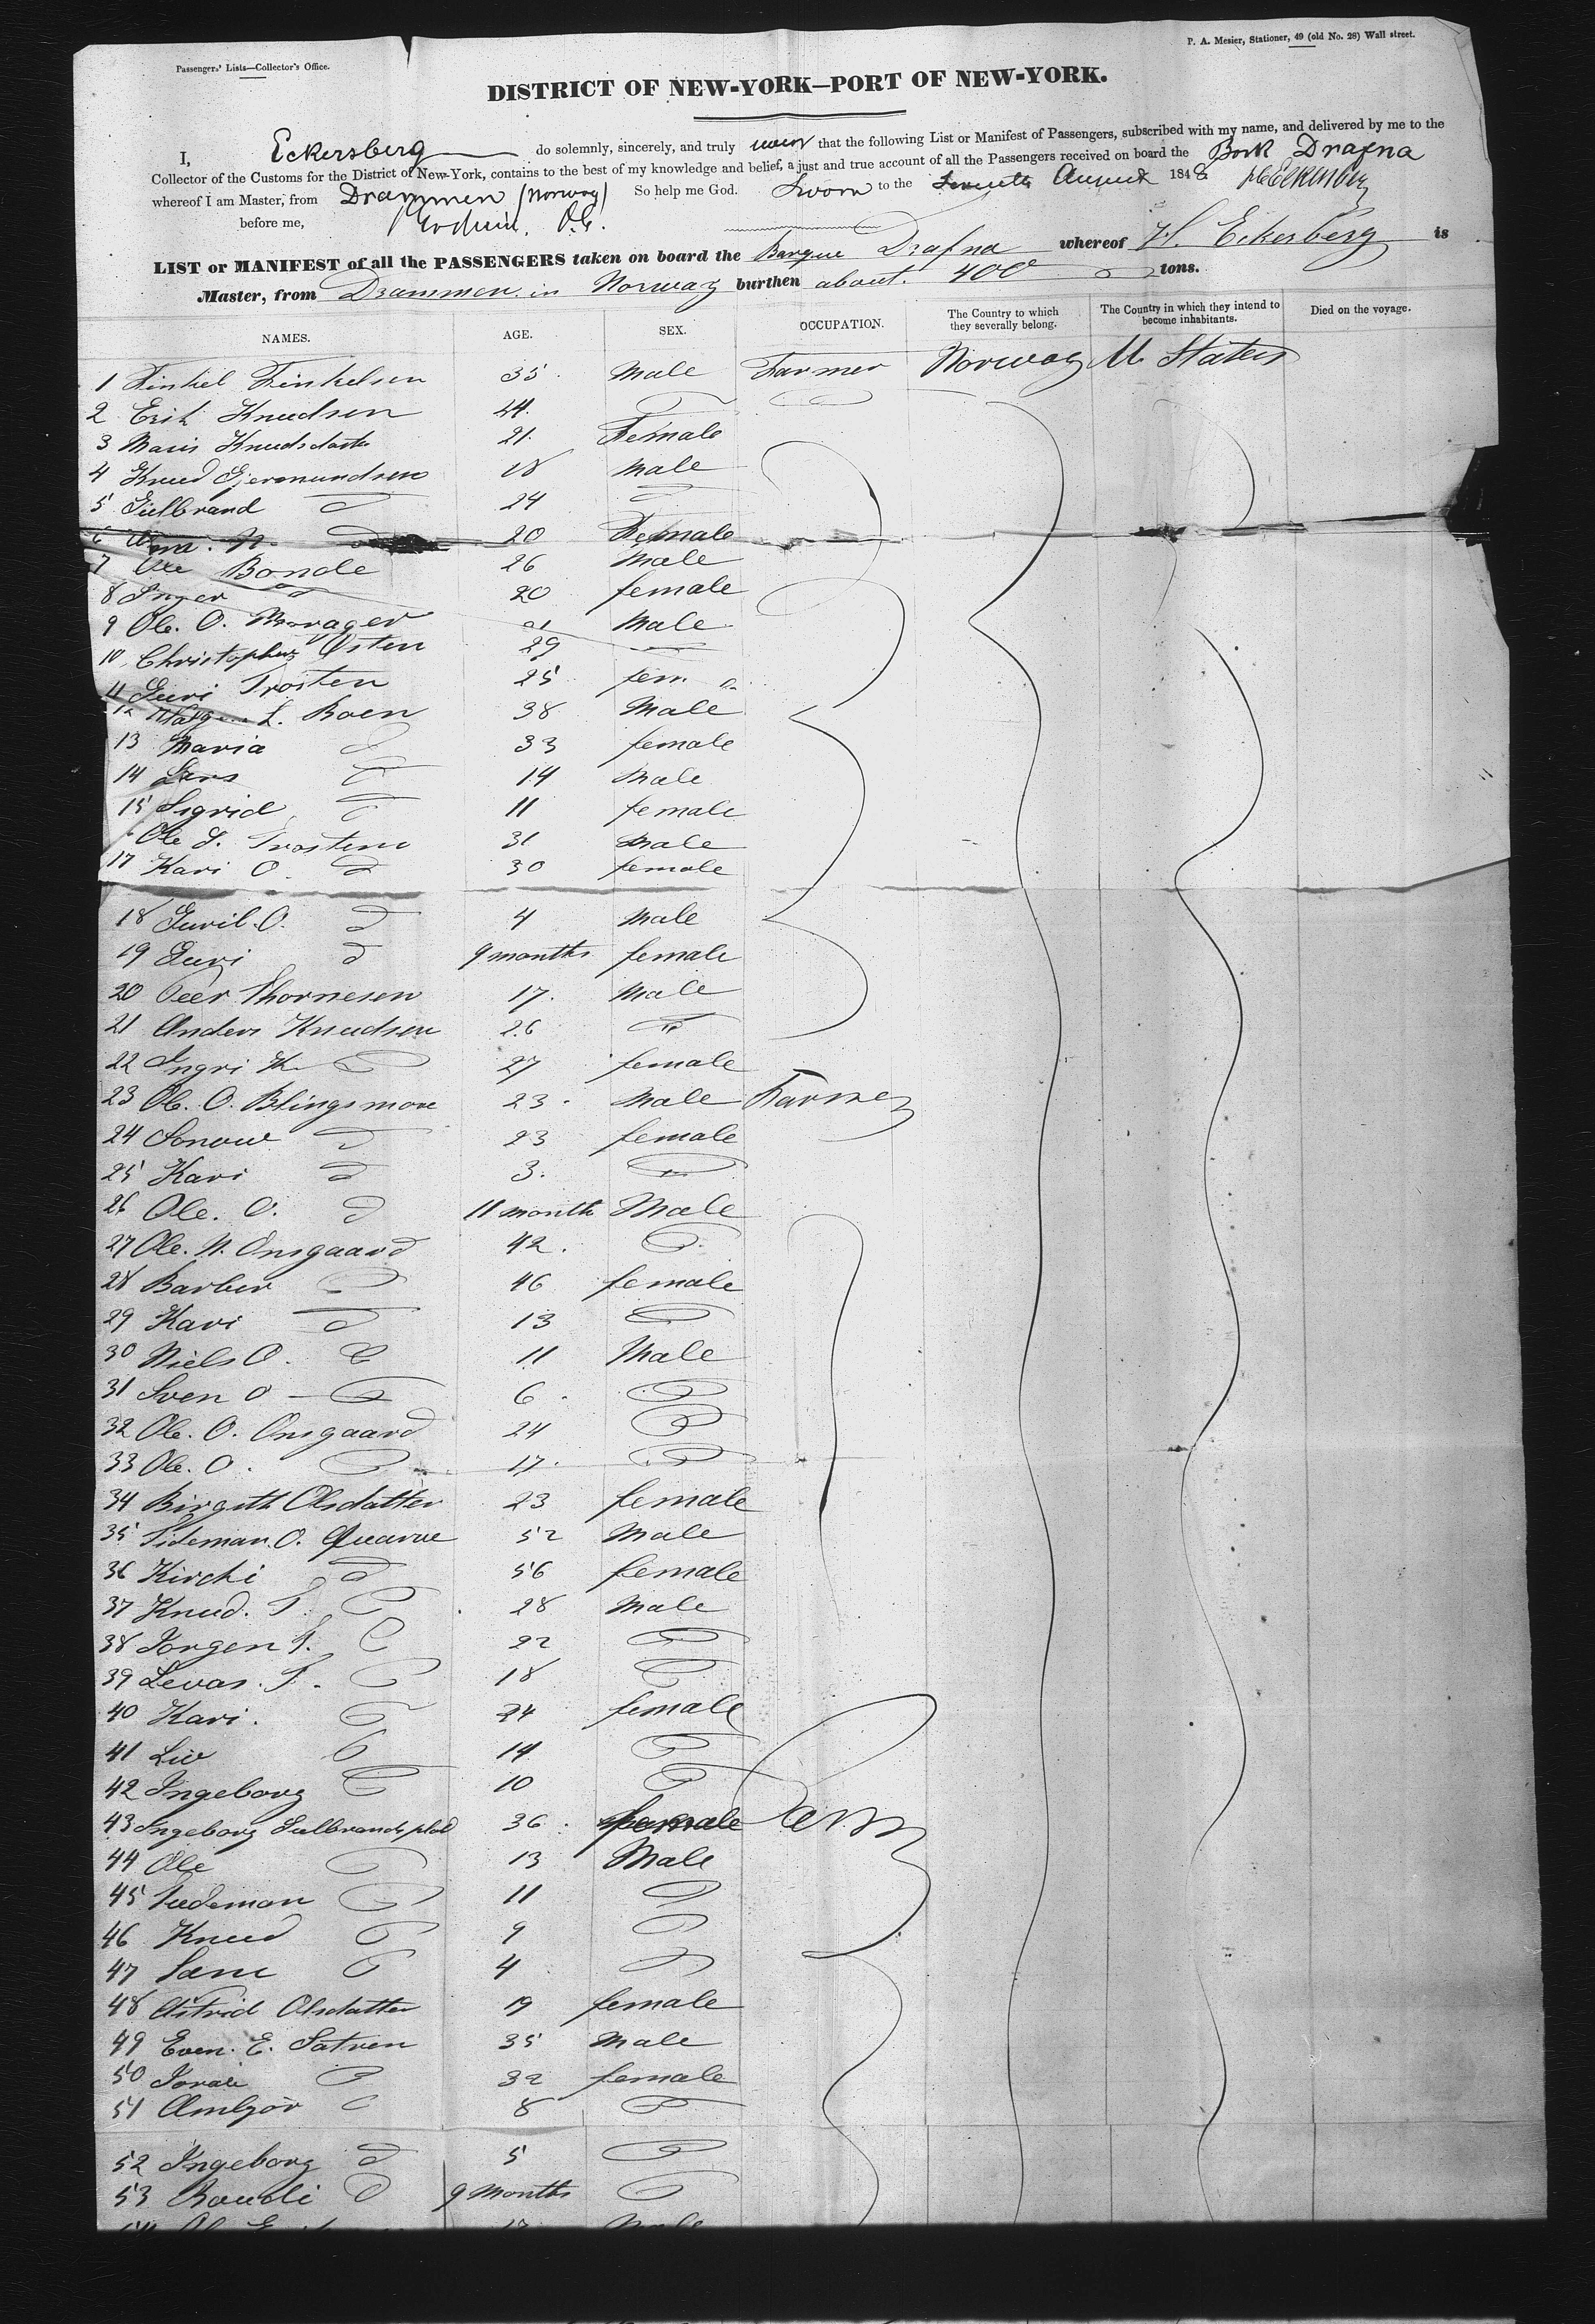 Passengers' Lists—Collector's Office.
P. A. Mesier, Stationer, 49 (old No. 28) Wall street.
DISTRICT OF NEW-YORK—PORT OF NEW-YORK.
I, Eckersberg do solemnly, sincerely, and truly swear that the following List or Manifest of Passengers, subscribed with my name, and delivered by me to the
Collector of the Customs for the District of New-York, contains to the best of my knowledge and belief, a just and true account of all the Passengers received on board the Bark Drafna
whereof I am Master, from Drammen (Norway) So help me God. Sworn to the August 1848 H Eckersberg
before me,
LIST or MANIFEST of all the PASSENGERS taken on board the Barque Drafna whereof H. Eckersberg is
Master, from Drammen in Norway burthen about 400 tons.
NAMES. AGE. SEX. OCCUPATION. The Country to which they severally belong. The Country in which they intend to become inhabitants. Died on the voyage.
1 Finkel Finkelsen 35 Male Farmer Norway U States
2 Erik Knudsen 24
3 Maris Knudsdatter 21 Female
4 Knud Gjermundsen 18 Male
5 Gulbrand d 24
6 N. d 20 Female
7 Ole Bonde 26 Male
8 Inger d 20 female
9 Ole. O. Male
10 Christopher Østen 29
11 Guri Trosten 25 fem
12 L. Boen 38 Male
13 Maria d 33 female
14 Lars d 14 Male
15 Sigrid d 11 female
Ole S. Trosten 31 Male
17 Kari O. d 30 female
18 O. d 4 Male
19 Guri d 9 months female
20 Peer Thornesen 17. Male
21 Anders Knudsen 26
22 Ingri K. d 27 female
23 Ole. O. Blingsmoe 23 Male Farmer
24 d 23 female
25 Kari d 3.
26 Ole. O. d 11 month Male
27 Ole. N. Onsgaard 42.
28 Barber d 46 female
29 Kari d 13
30 Niels O. d 11 Male
31 Sven O d 6
32 Ole. O. Onsgaard 24
33 Ole. O. d 17.
34 Birgith Olsdatter 23 female
35 Tideman. O. Quarve 52 Male
36 Kirchi d 56 female
37 Knud. T. d 28 Male
38 Jorgen T. d 22
39 Levas. T. d 18
40 Kari. d 24 female
41 Liv d 14
42 Ingeborg d 10
43 Ingeborg Gulbrandsplad 36 female
44 Ole d 13 Male
45 Tudeman d 11
46 Knud d 9
47 d 4
48 Astrid Olsdatter 19 female
49 Even. E. Satren 35 Male
50 d 32 female
51 Ambjør d 8
52 Ingeborg d 5
53 Roudi d 9 Months